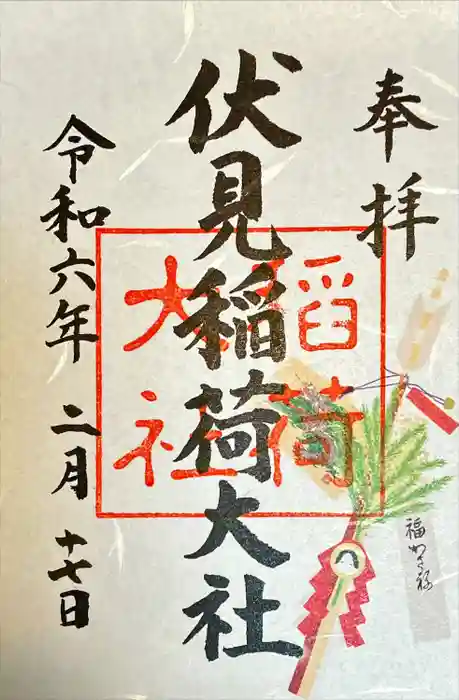 奉拝
伏見稲荷大社
稲荷
大社
令和六年 二月 十七日